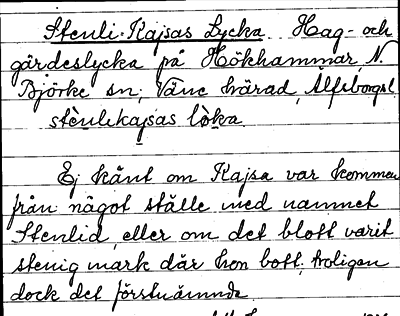 Stenli-Kajsas Lycka. Hag- och
gärdeslycka på Hökhammar, N.
Björke sn, Väne härad, Älfsborgs l.
stènlikajsas lòka.
Ej känt om Kajsa var kommen
från något ställe med namnet
Stenlid, eller om det blott varit
stenig mark där hon bott; troligen
dock det förstnämnda.